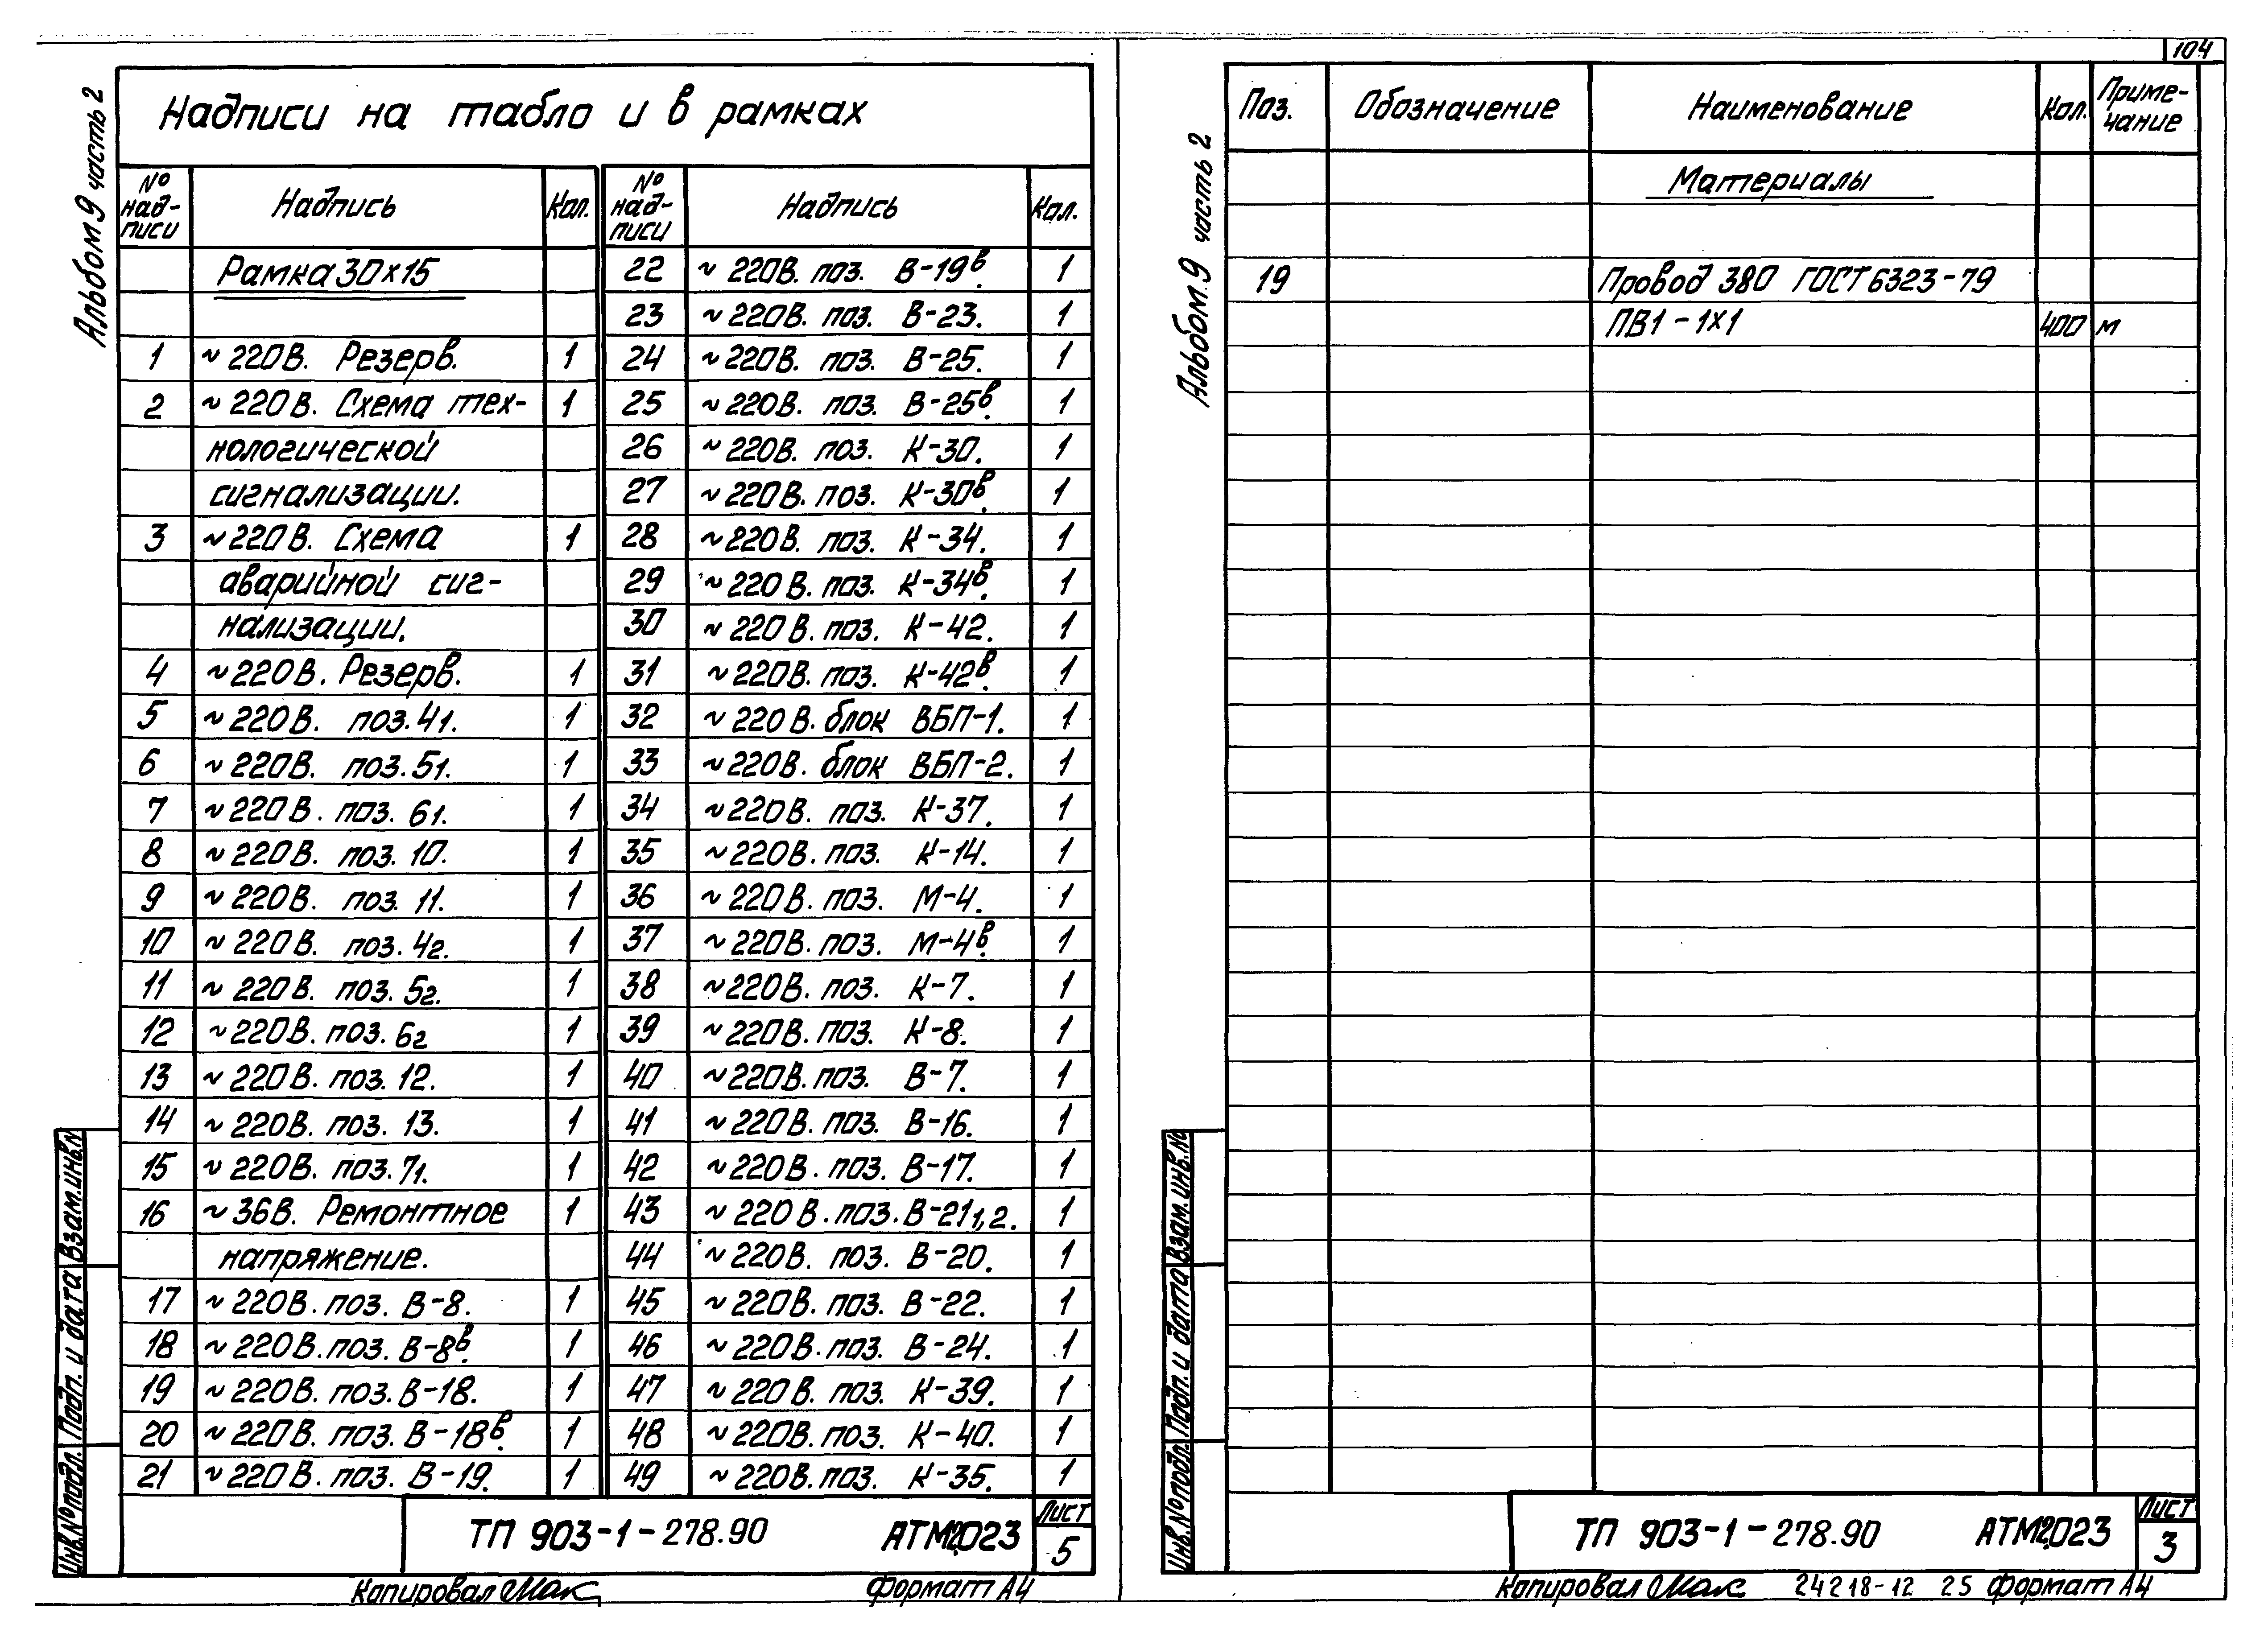 104
Альбом 9 часть 2
Надписи на табло и в рамках
№ надписи Надпись Кол.
Рамка 30х15
1 ~220В. Резерв. 1
2 ~220В. Схема тех- 1
нологической
сигнализации.
3 ~220В. Схема 1
аварийной сиг-
нализации.
4 ~220В. Резерв. 1
5 ~220В. поз. 41. 1
6 ~220В. поз. 51. 1
7 ~220В. поз. 61. 1
8 ~220В. поз. 10. 1
9 ~220В. поз. 11. 1
10 ~220В. поз. 42. 1
11 ~220В. поз. 52. 1
12 ~220В. поз. 62 1
13 ~220В. поз. 12. 1
14 ~220В. поз. 13. 1
15 ~220В. поз. 71. 1
16 ~36В. Ремонтное 1
напряжение.
17 ~220В. поз. В-8. 1
18 ~220В. поз. В-8в. 1
19 ~220В. поз. В-18. 1
20 ~220В. поз. В-18в. 1
21 ~220В. поз. В-19. 1
№ надписи Надпись Кол.
22 ~220В. поз. В-19в. 1
23 ~220В. поз. В-23. 1
24 ~220В. поз. В-25. 1
25 ~220В. поз. В-25в. 1
26 ~220В. поз. К-30. 1
27 ~220В. поз. К-30в. 1
28 ~220В. поз. К-34. 1
29 ~220В. поз. К-34в. 1
30 ~220В. поз. К-42. 1
31 ~220В. поз. К-42в. 1
32 ~220В. блок ВБП-1. 1
33 ~220В. блок ВБП-2. 1
34 ~220В. поз. К-37. 1
35 ~220В. поз. К-14. 1
36 ~220В. поз. М-4. 1
37 ~220В. поз. М-4в. 1
38 ~220В. поз. К-7. 1
39 ~220В. поз. К-8. 1
40 ~220В. поз. В-7. 1
41 ~220В. поз. В-16. 1
42 ~220В. поз. В-17. 1
43 ~220В. поз. В-211,2. 1
44 ~220В. поз. В-20. 1
45 ~220В. поз. В-22. 1
46 ~220В. поз. В-24. 1
47 ~220В. поз. К-39. 1
48 ~220В. поз. К-40. 1
49 ~220В. поз. К-35. 1
Инв.№подл. Подп. и дата Взам.инв.№
ТП 903-1-278.90 АТМ2.023
Лист
5
Копировал Формат А4
Альбом 9 часть 2
Поз. Обозначение Наименование Кол. Приме-
чание
Материалы
19 Провод 380 ГОСТ 6323-79
ПВ1-1х1 400 м
Инв.№подл. Подп. и дата Взам.инв.№
ТП 903-1-278.90 АТМ2.023
Лист
3
Копировал 24218-12 25 Формат А4